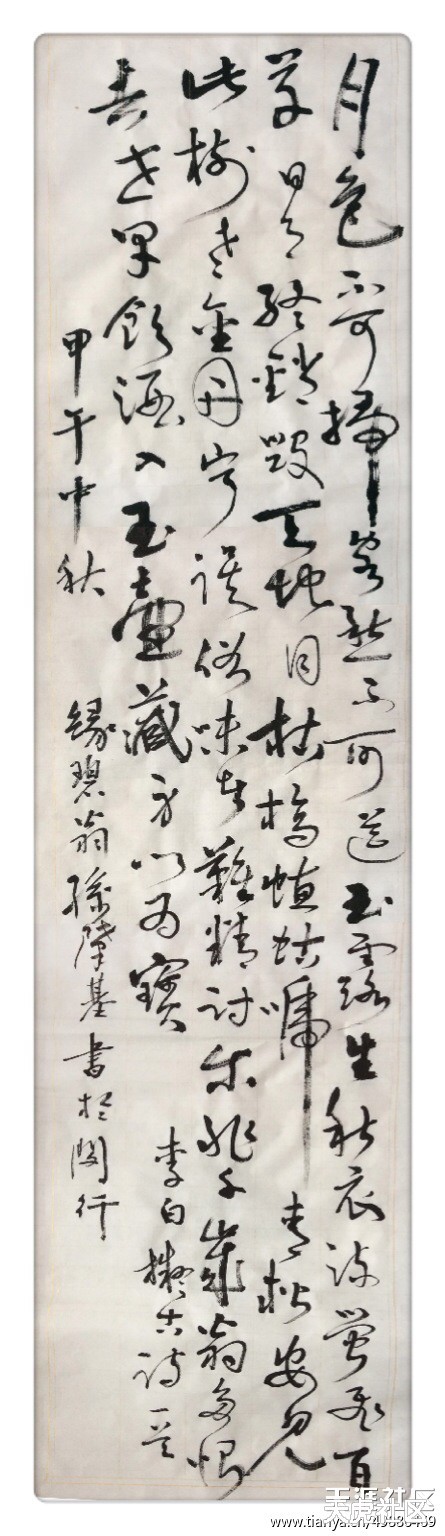 月色不可掃客愁不可道玉露生秋衣流螢飛百
草日月終銷毀天地同枯槁蟪蛄啼青松安見
此樹老金丹寧誤俗昧者難精討尔非千歲翁多恨
去世早飲酒入玉壺藏身以為寶
李白擬古詩一首
甲午中秋 緣碧翁孫肇基書於閔行
天涯社区